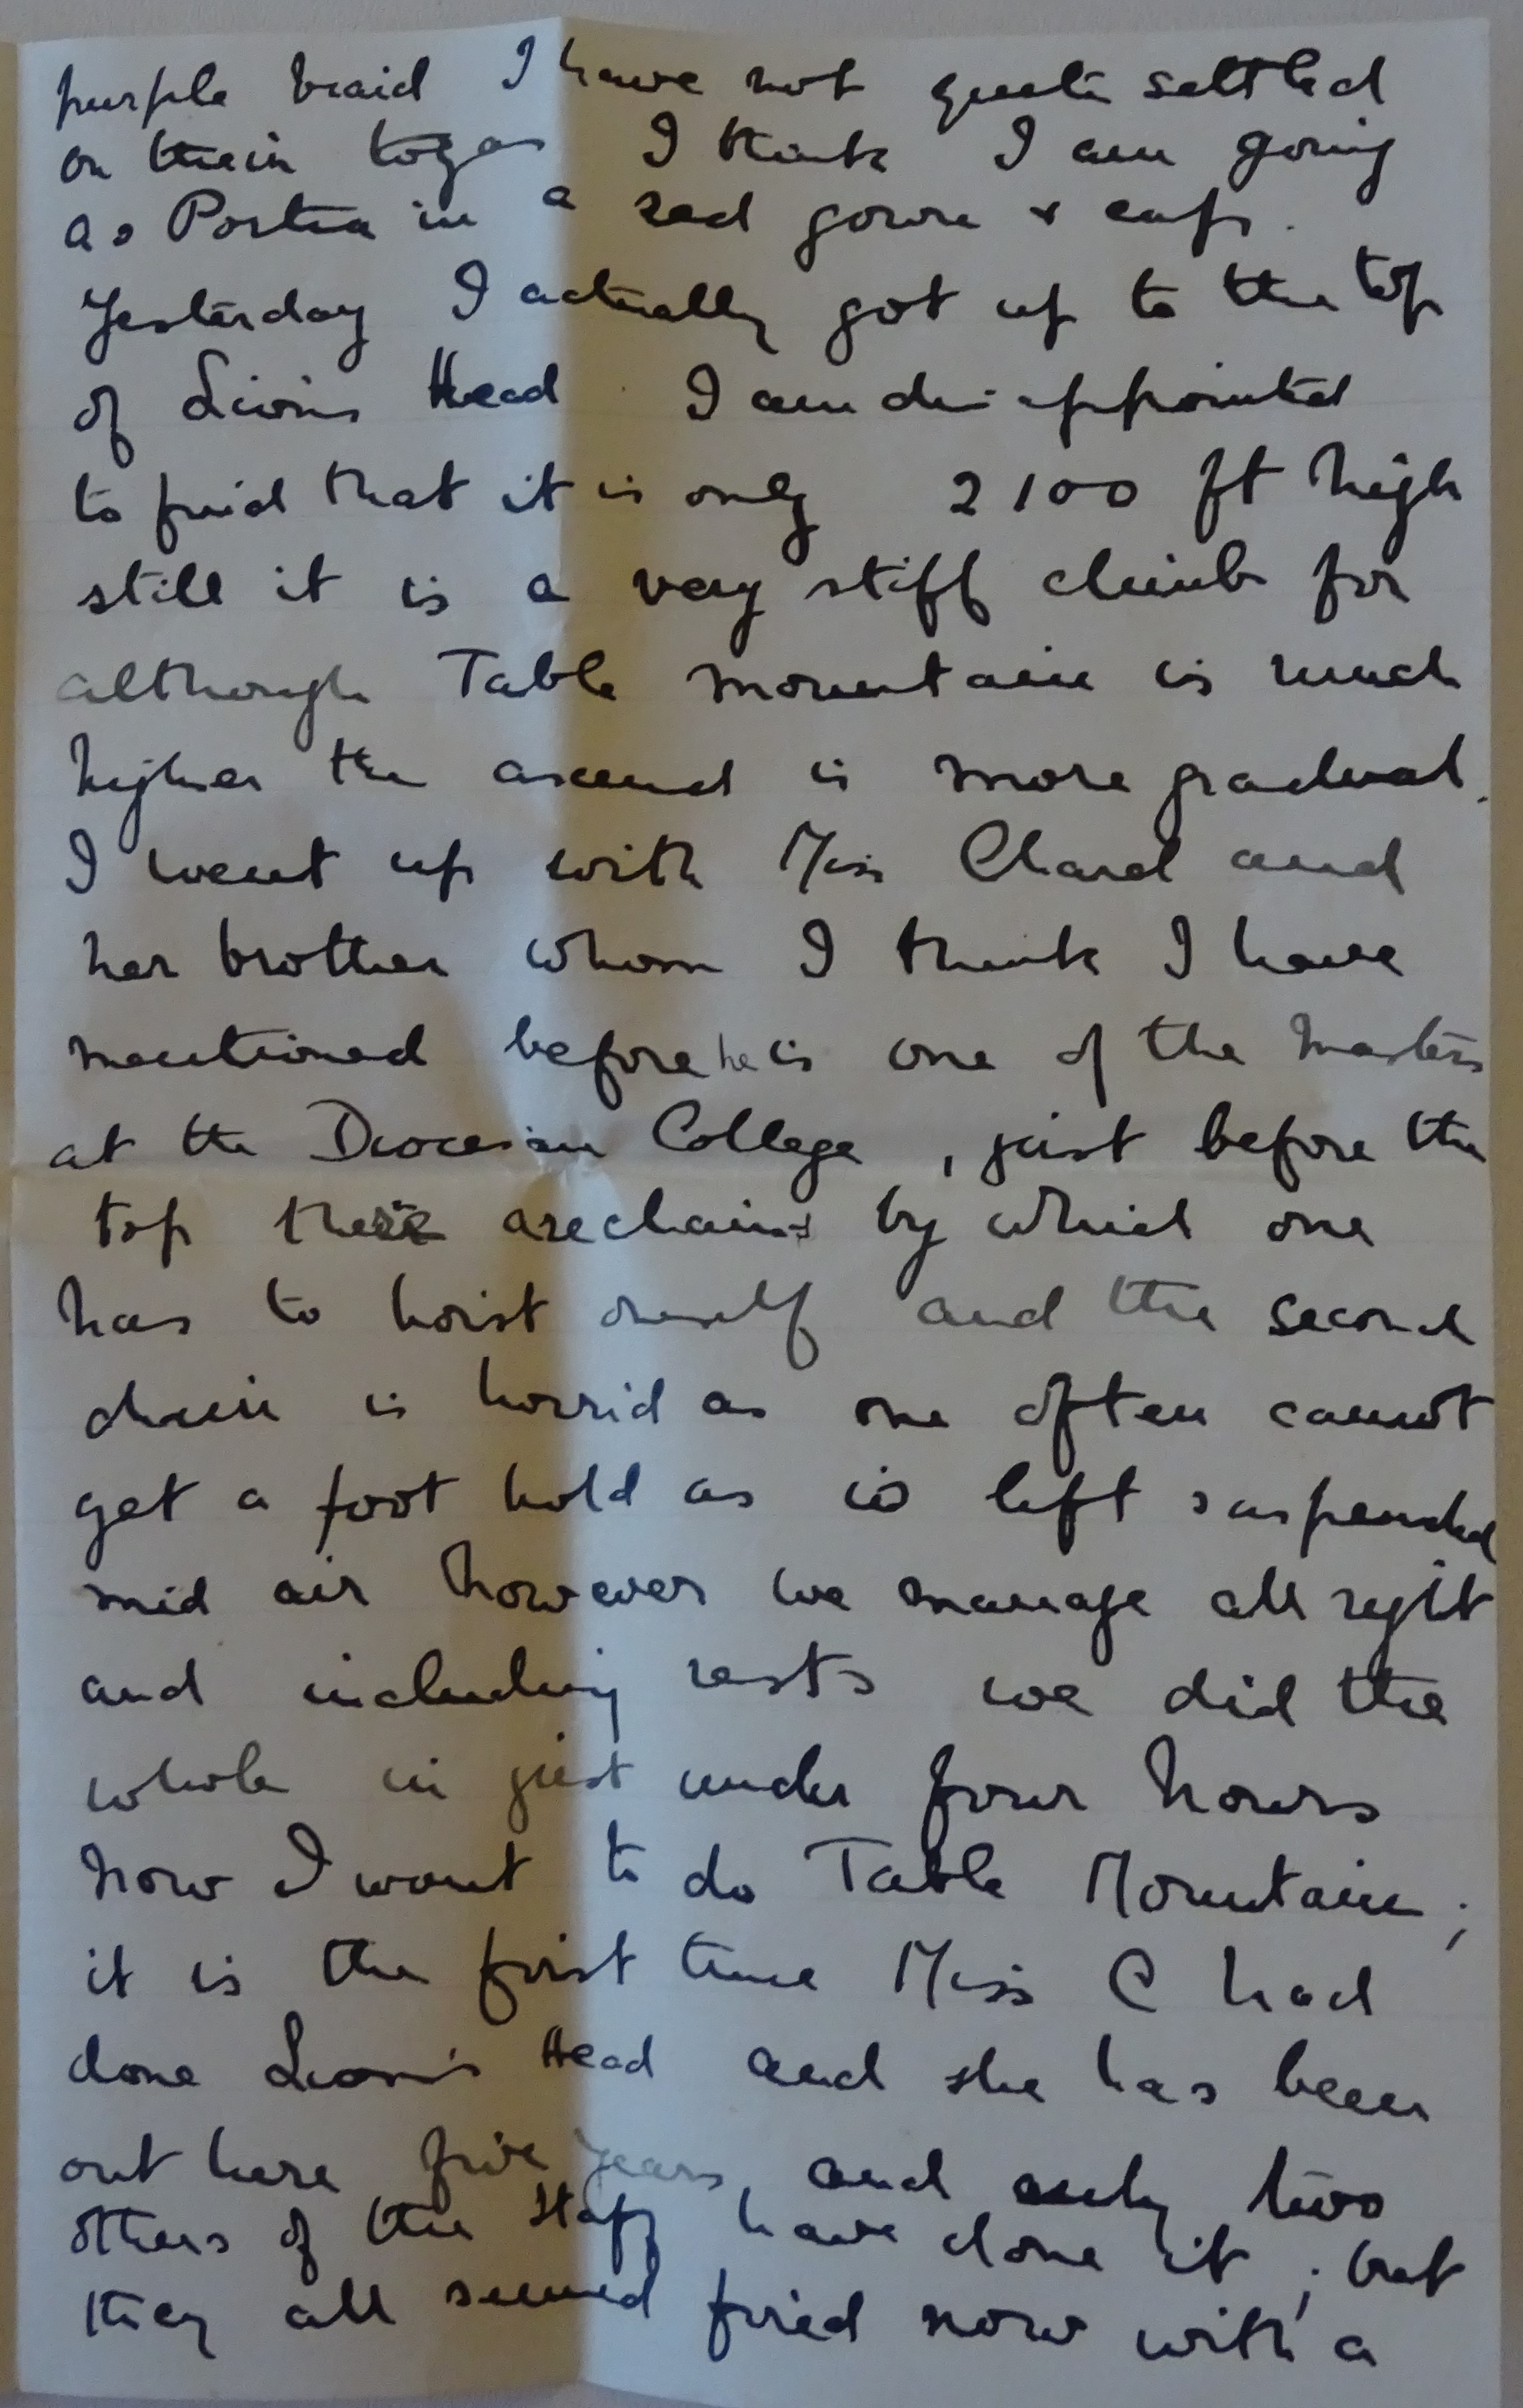 purple braid I have not quite settled
on their togas I think I am going
as Portia in a red gown & cap.
Yesterday I actually got up to the top
of Lion's Head. I am disappointed
to find that it is only 2100 ft high
still it is a very stiff climb for
although Table mountain is much
higher the ascend is more gradual.
I went up with Miss Chard and
her brother whom I think I have
mentioned before he is one of the masters
at the Diocesan College, just before the
top there are chains by which one
has to hoist oneself and the second
chain is horrid as one often cannot
get a foot hold as is left suspended
mid air however we manage all right
and including rests we did the
whole in just under four hours
now I want to do Table Mountain;
it is the first time Miss C had
done Lion's Head and she has been
out here five years, and only two
others of the staff have done it; but
they all seemed fired now with a